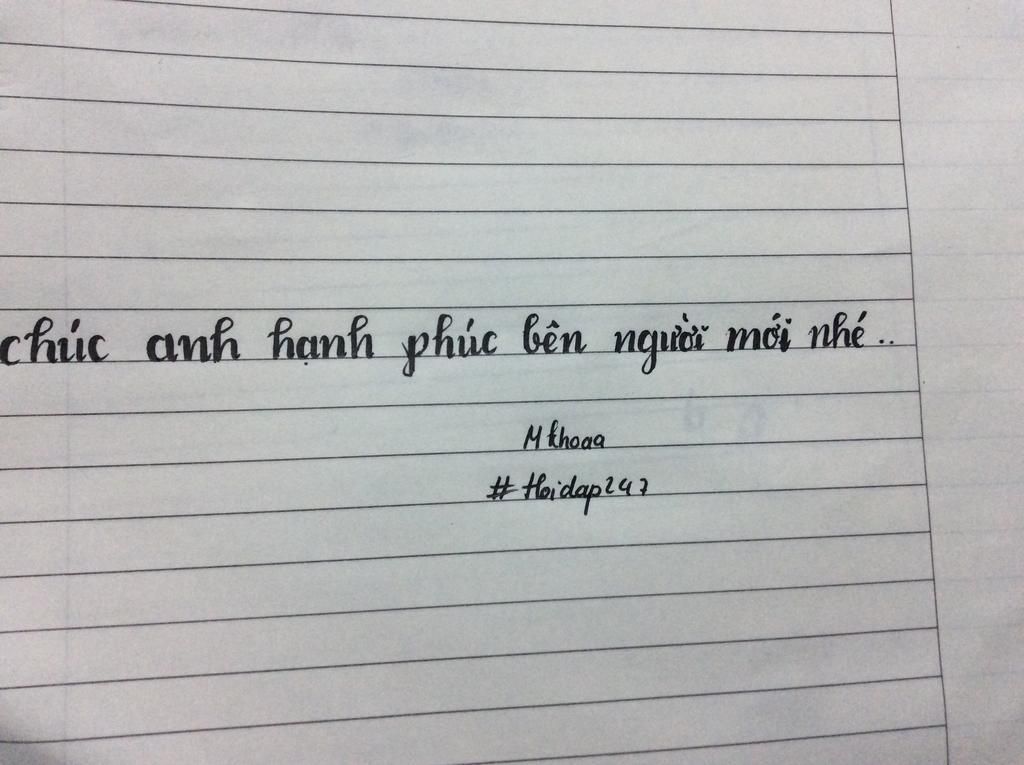 chúc anh hạnh phúc bên người mới nhé..
Mkhoaa
#Hoidap247